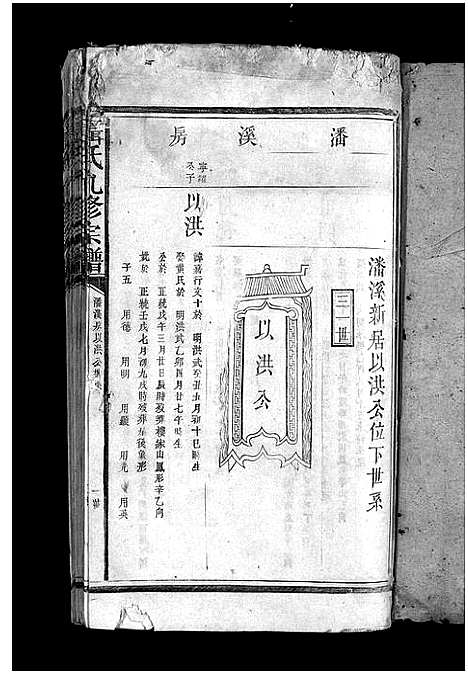 潘溪房
潘溪新居以洪公位下世系
三一世
以洪公
以洪
諱嘉行文十於 明洪武辛丑五月初十巳時生
娶黃氏於 明洪武乙卯四月廿七午時生
公於 正統戊午三月廿日辰時歿葬樓绿山鳳形辛乙向
氏於 正統壬戌七月初九戌時歿葬屋後象形
子五 用德 用明 用顯 用光 用英
氏九修宗譜
潘溪房以洪公